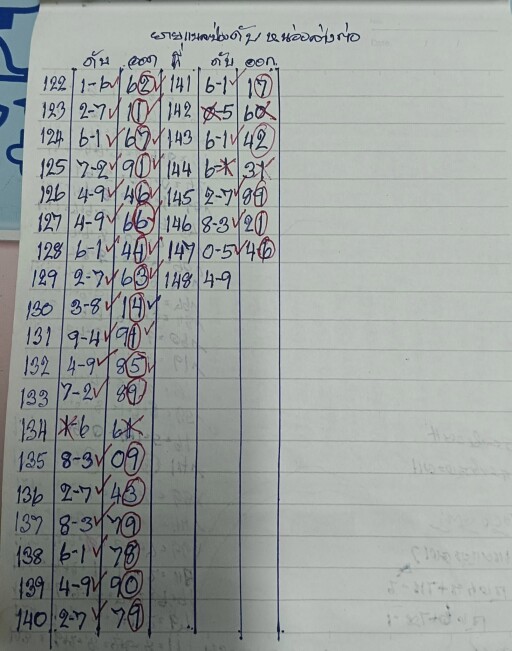 ดับ ออก ที่ ดับ ออก
122 1-6 62 141 6-1 17
123 2-7 11 142 0-5 60
124 6-1 67 143 6-1 42
125 7-2 91 144 6-1 31
126 4-9 46 145 2-7 89
127 4-9 66 146 8-3 21
128 6-1 44 147 0-5 46
129 2-7 63 148 4-9
130 3-8 14
131 9-4 91
132 4-9 85
133 7-2 89
134 1-6 61
135 8-3 09
136 2-7 43
137 8-3 79
138 6-1 78
139 4-9 90
140 2-7 79